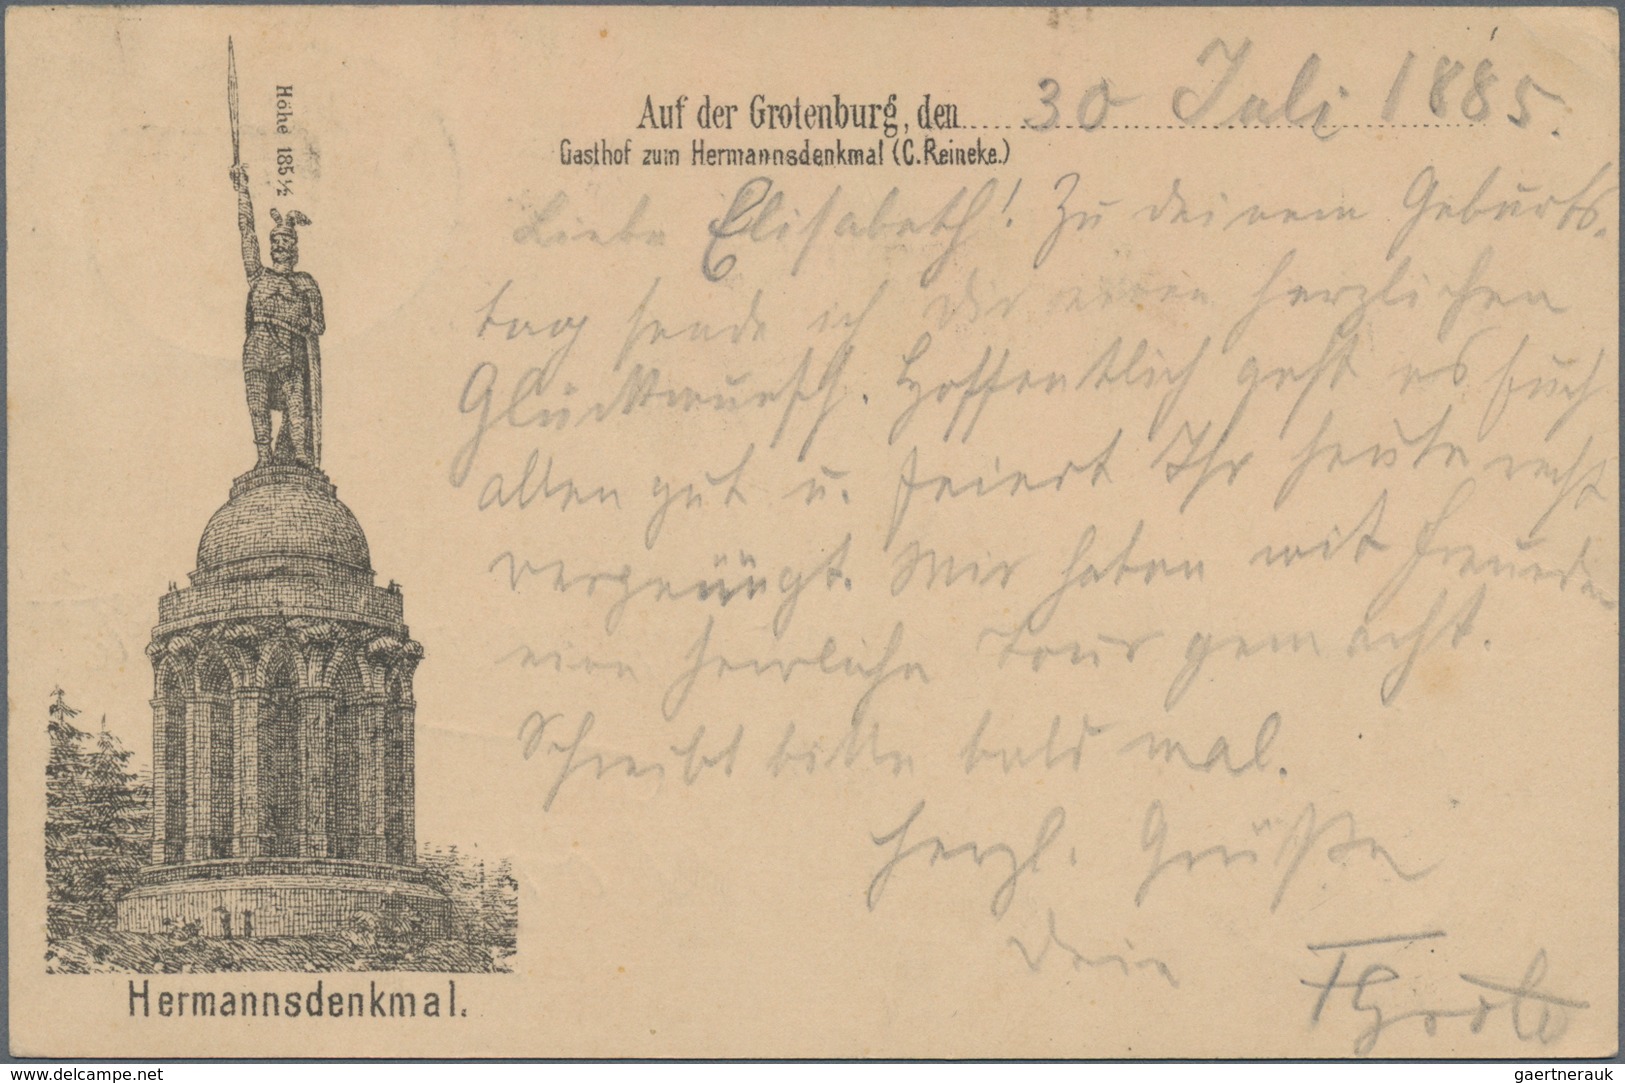 Höhe 185 ½
Auf der Grotenburg, den 30 Juli 1885.
Gasthof zum Hermannsdenkmal (C. Reineke.)
Liebe Elisabeth! Zu deinem Geburts-
tag sende ich Dir einen herzlichen
Glückwunsch. Hoffentlich geht es Euch
allen gut u. feiert Ihr heute recht
vergnügt. Wir haben mit Freunden
eine herrliche Tour gemacht.
Schreibt bitte bald mal.
Herzl. Grüße
Dein
Hermannsdenkmal.
www.delcampe.net
gaertnerauk